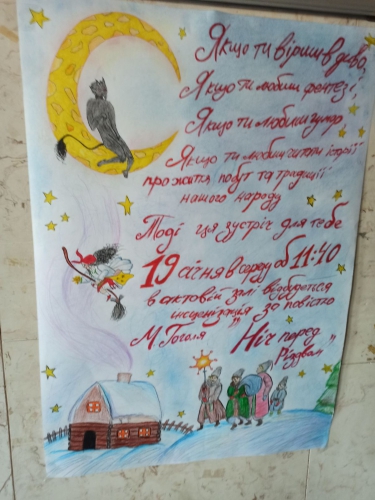 Якщо ти віриш в диво,
Якщо ти любиш фентезі,
Якщо ти любиш гумор,
Якщо ти любиш читати історії
про життя, побут та традиції
нашого народу
Тоді ця зустріч для тебе
19 січня в середу об 11:40
в актовій залі відбудеться
інсценізація за повістю
М. Гоголя "Ніч перед
Різдвом"